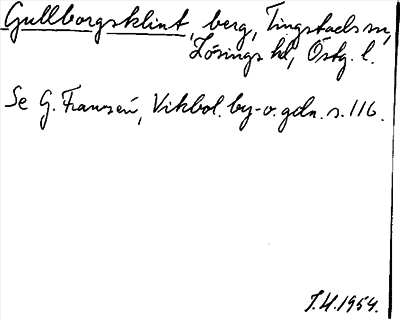 Gullborgsklint, berg, Tingstads sn,
Lösings hd, Östg. l.
Se G. Franzén, Vikbol. by- o. gdn. s. 116.
J.H. 1954.